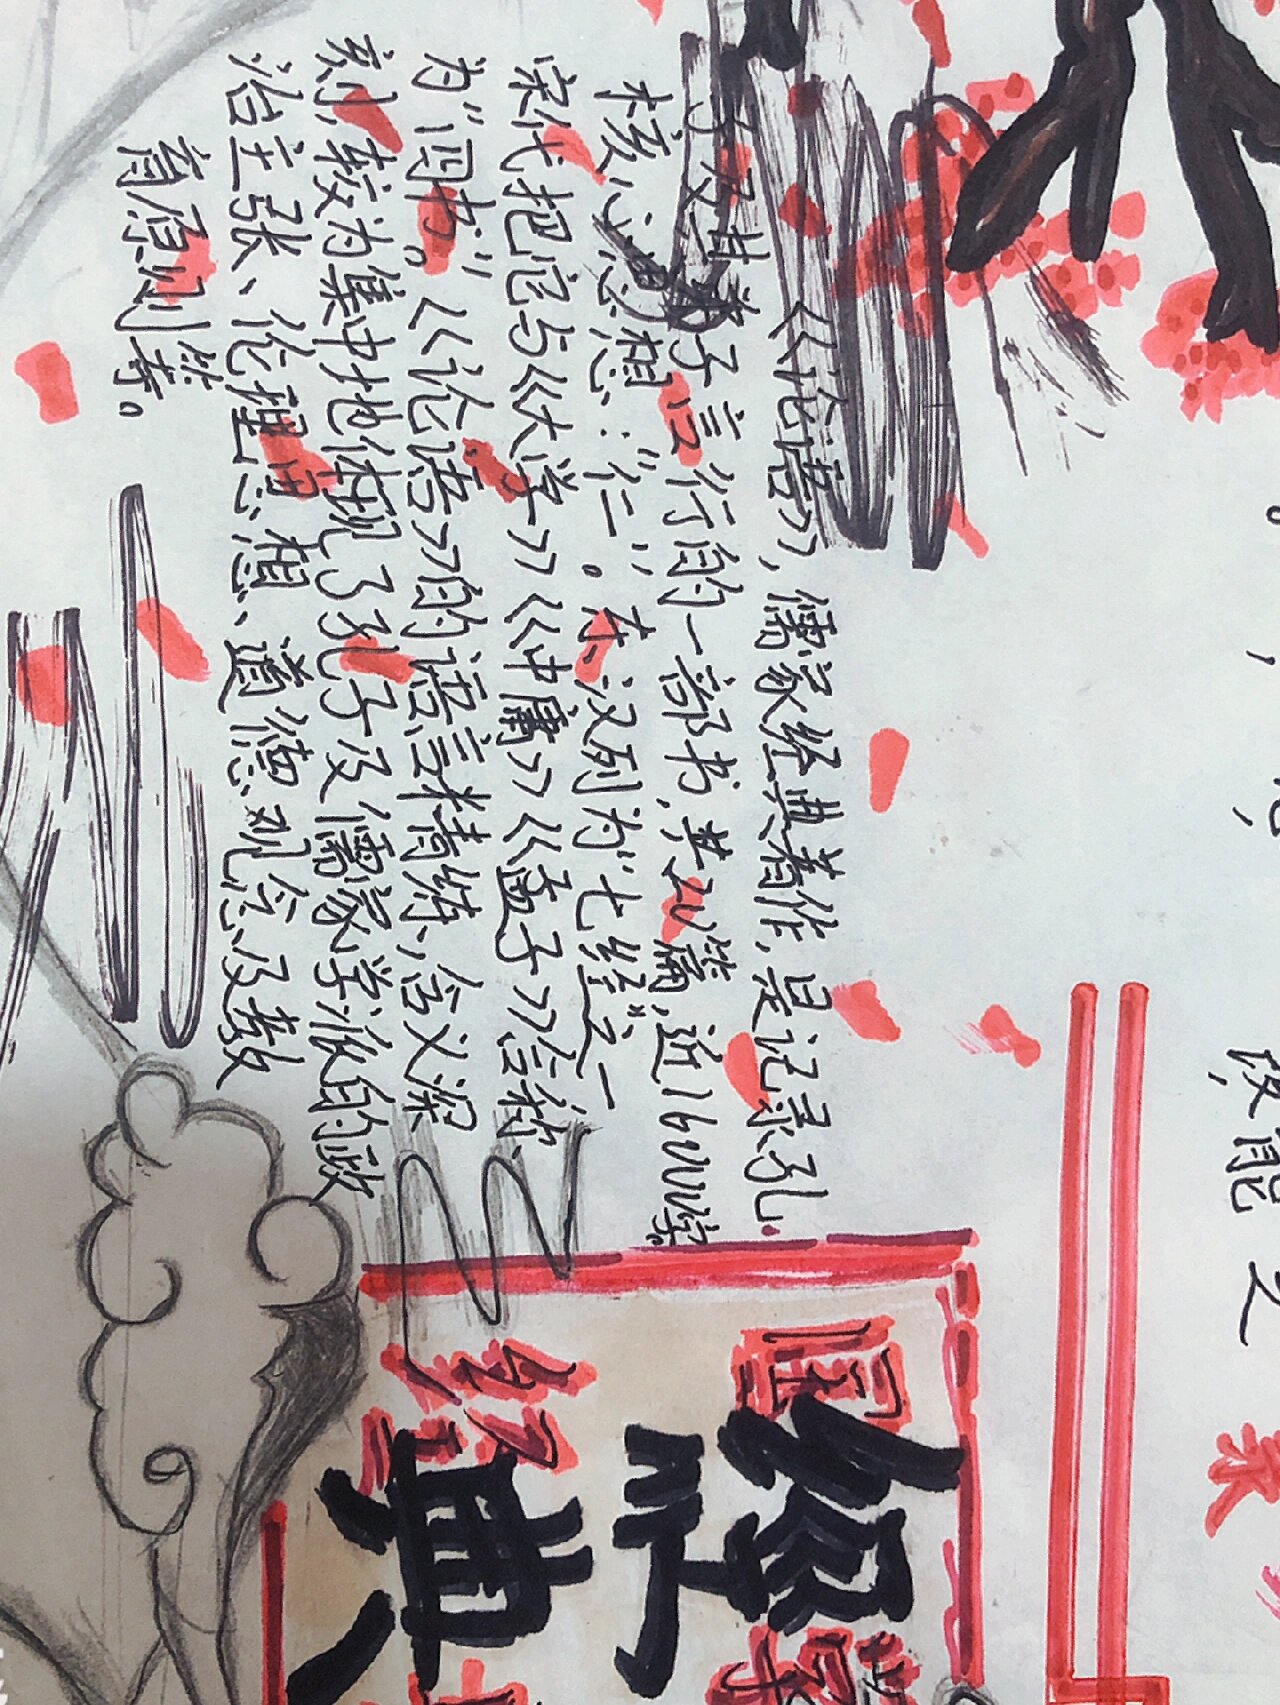 《论语》，儒家经典著作，是记录孔
子及其弟子言行的一部书，共20篇，近16000字。
核心思想：“仁”。东汉列为“七经”之一
宋代把它与《大学》《中庸》《孟子》合称
为“四书”。《论语》的语言精练、含义深
刻，较为集中地体现了孔子及儒家学派的政
治主张、伦理思想、道德观念及教
育原则等。
经典